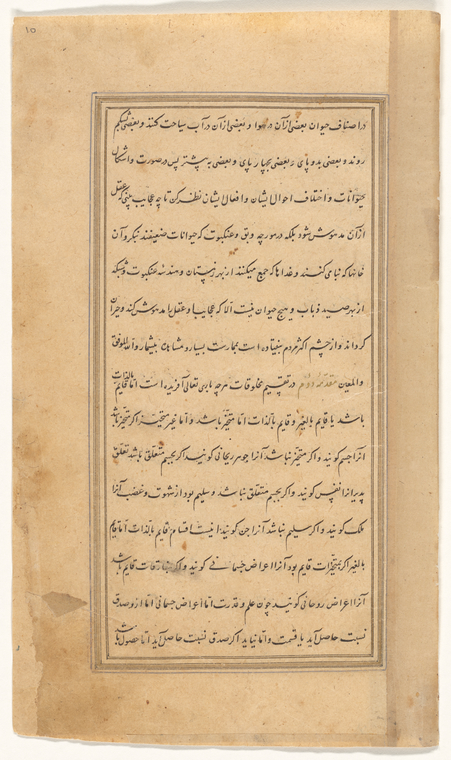 ۱۵
در اصناف حیوان بعضی ازآن در هوا و بعضی ازآن در آب سیاحت کنند و بعضی بشکم
روند و بعضی بدو پای و بعضی بچهار پای و بعضی به بیشتر پس در صورت و اشکال
حیوانات و اختلاف احوال ایشان و افعال ایشان نظر کن تا چه عجایب بینی که عقل
ازآن مدهوش شود بلکه در مورچه و بق و عنکبوت که حیوانات ضعیفند بنکر و آن
خانها که بنا می کنند و غذاها که جمع میکنند از بهر زمستان و هندسه عنکبوت و شبکه
از بهر صید ذباب و هیچ حیوان نیست الا که عجایبها و عقل را مدهوش کند و حیران
کرداند و از چشم اکثر مردم بیفتاده است بممارست بسیار و مشاهده بیشمار و الله الموفق
و المعین مقدمه دوم در تقسیم مخلوقات هر چه باری تعالی آفریده است اما قایم بالذات
باشد یا قایم بالغیر و قایم بالذات اما متحیز باشد و اما غیر متحیز اکر متحیز باشد
آنرا جسم کویند و اکر متحیز نباشد آنرا جوهر روحانی کویند اکر بجسم متعلق باشد تعلق
پذیر آنرا نفس کویند و اکر بجسم متعلق نباشد و سلیم بود از شهوت و غضب آنرا
ملک کویند و اکر سلیم نباشد آنرا جن کویند اینست اقسام قایم بالذات اما قایم
بالغیر اکر بمتحیزات قایم بود آنرا اعراض جسمانی کویند و اکر بمفارقات قایم باشد
آنرا اعراض روحانی کویند چون علم و قدرت اما اعراض جسمانی اما از و صدق
نسبت حاصل آید یا قسمت و اما نیاید اکر صدق نسبت حاصل آید اما حصول باشد